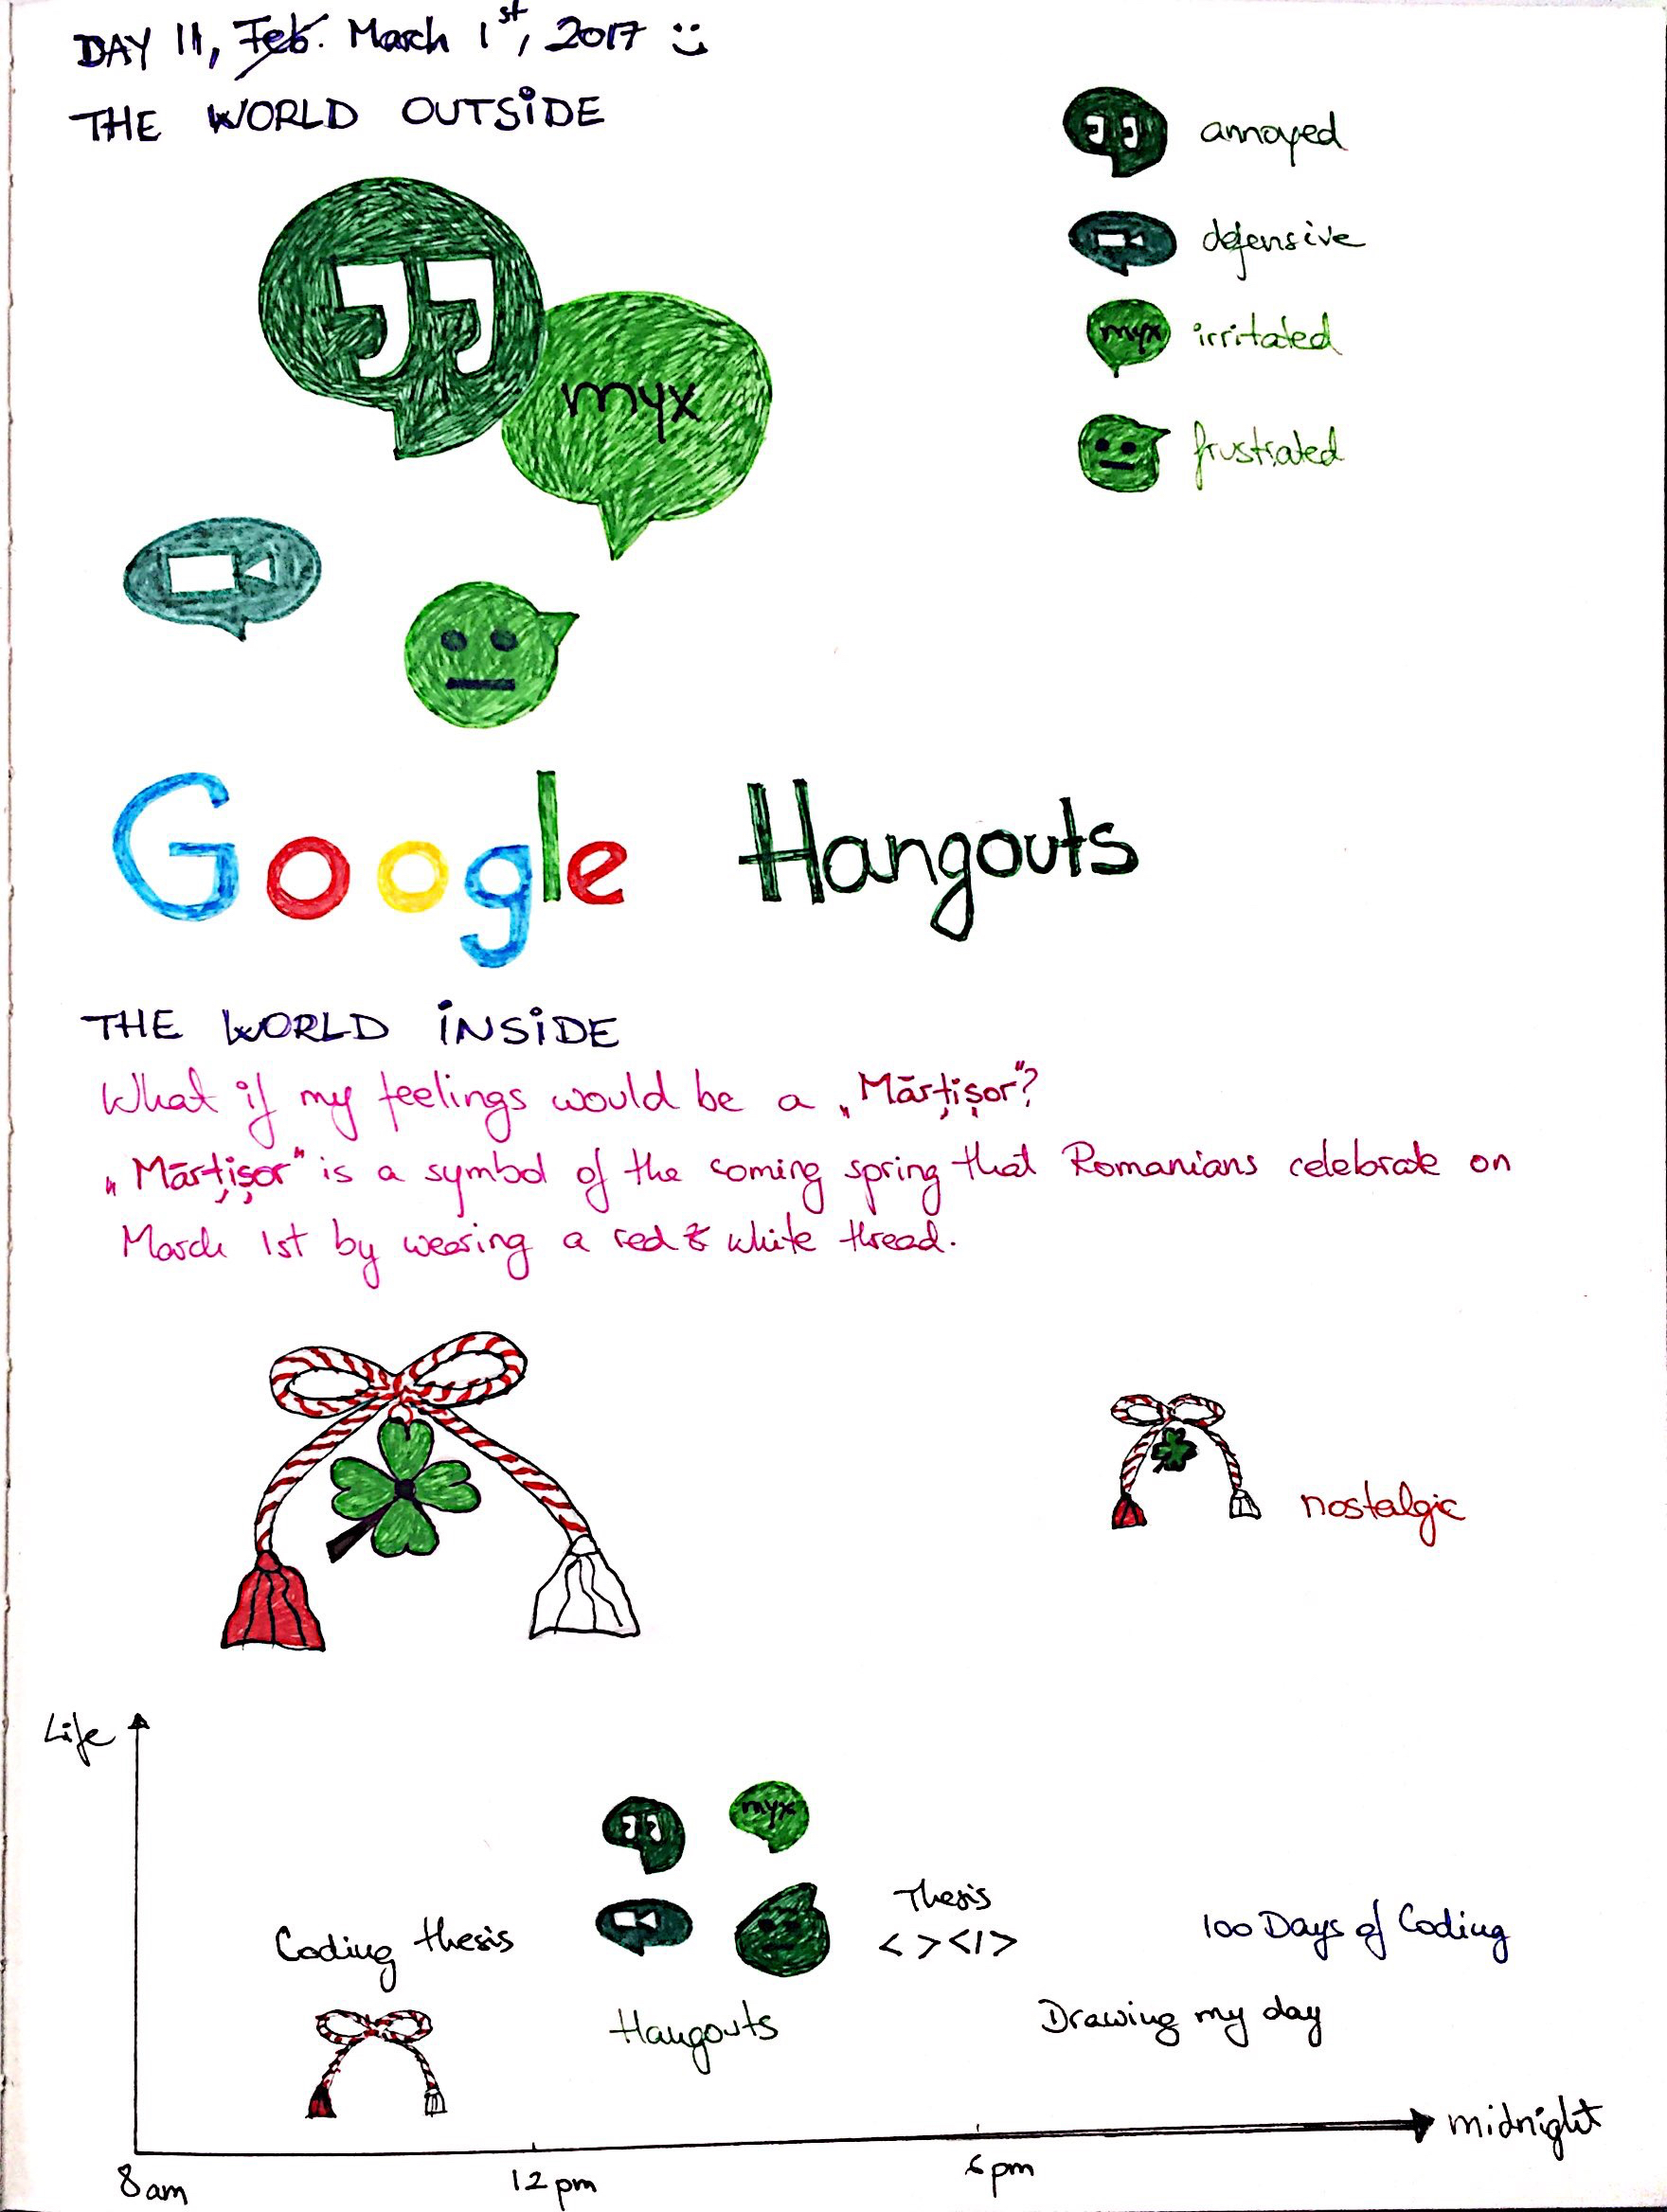 DAY 11, Feb. March 1st, 2017 :)
THE WORLD OUTSIDE
annoyed
defensive
myx irritated
frustrated
myx
Google Hangouts
THE WORLD INSIDE
What if my feelings would be a „Mărțișor"?
„Mărțișor" is a symbol of the coming spring that Romanians celebrate on
March 1st by wearing a red & white thread.
nostalgic
Life
myx
Coding thesis
Thesis
< ></>
100 Days of Coding
Hangouts
Drawing my day
midnight
8am 12pm 6pm